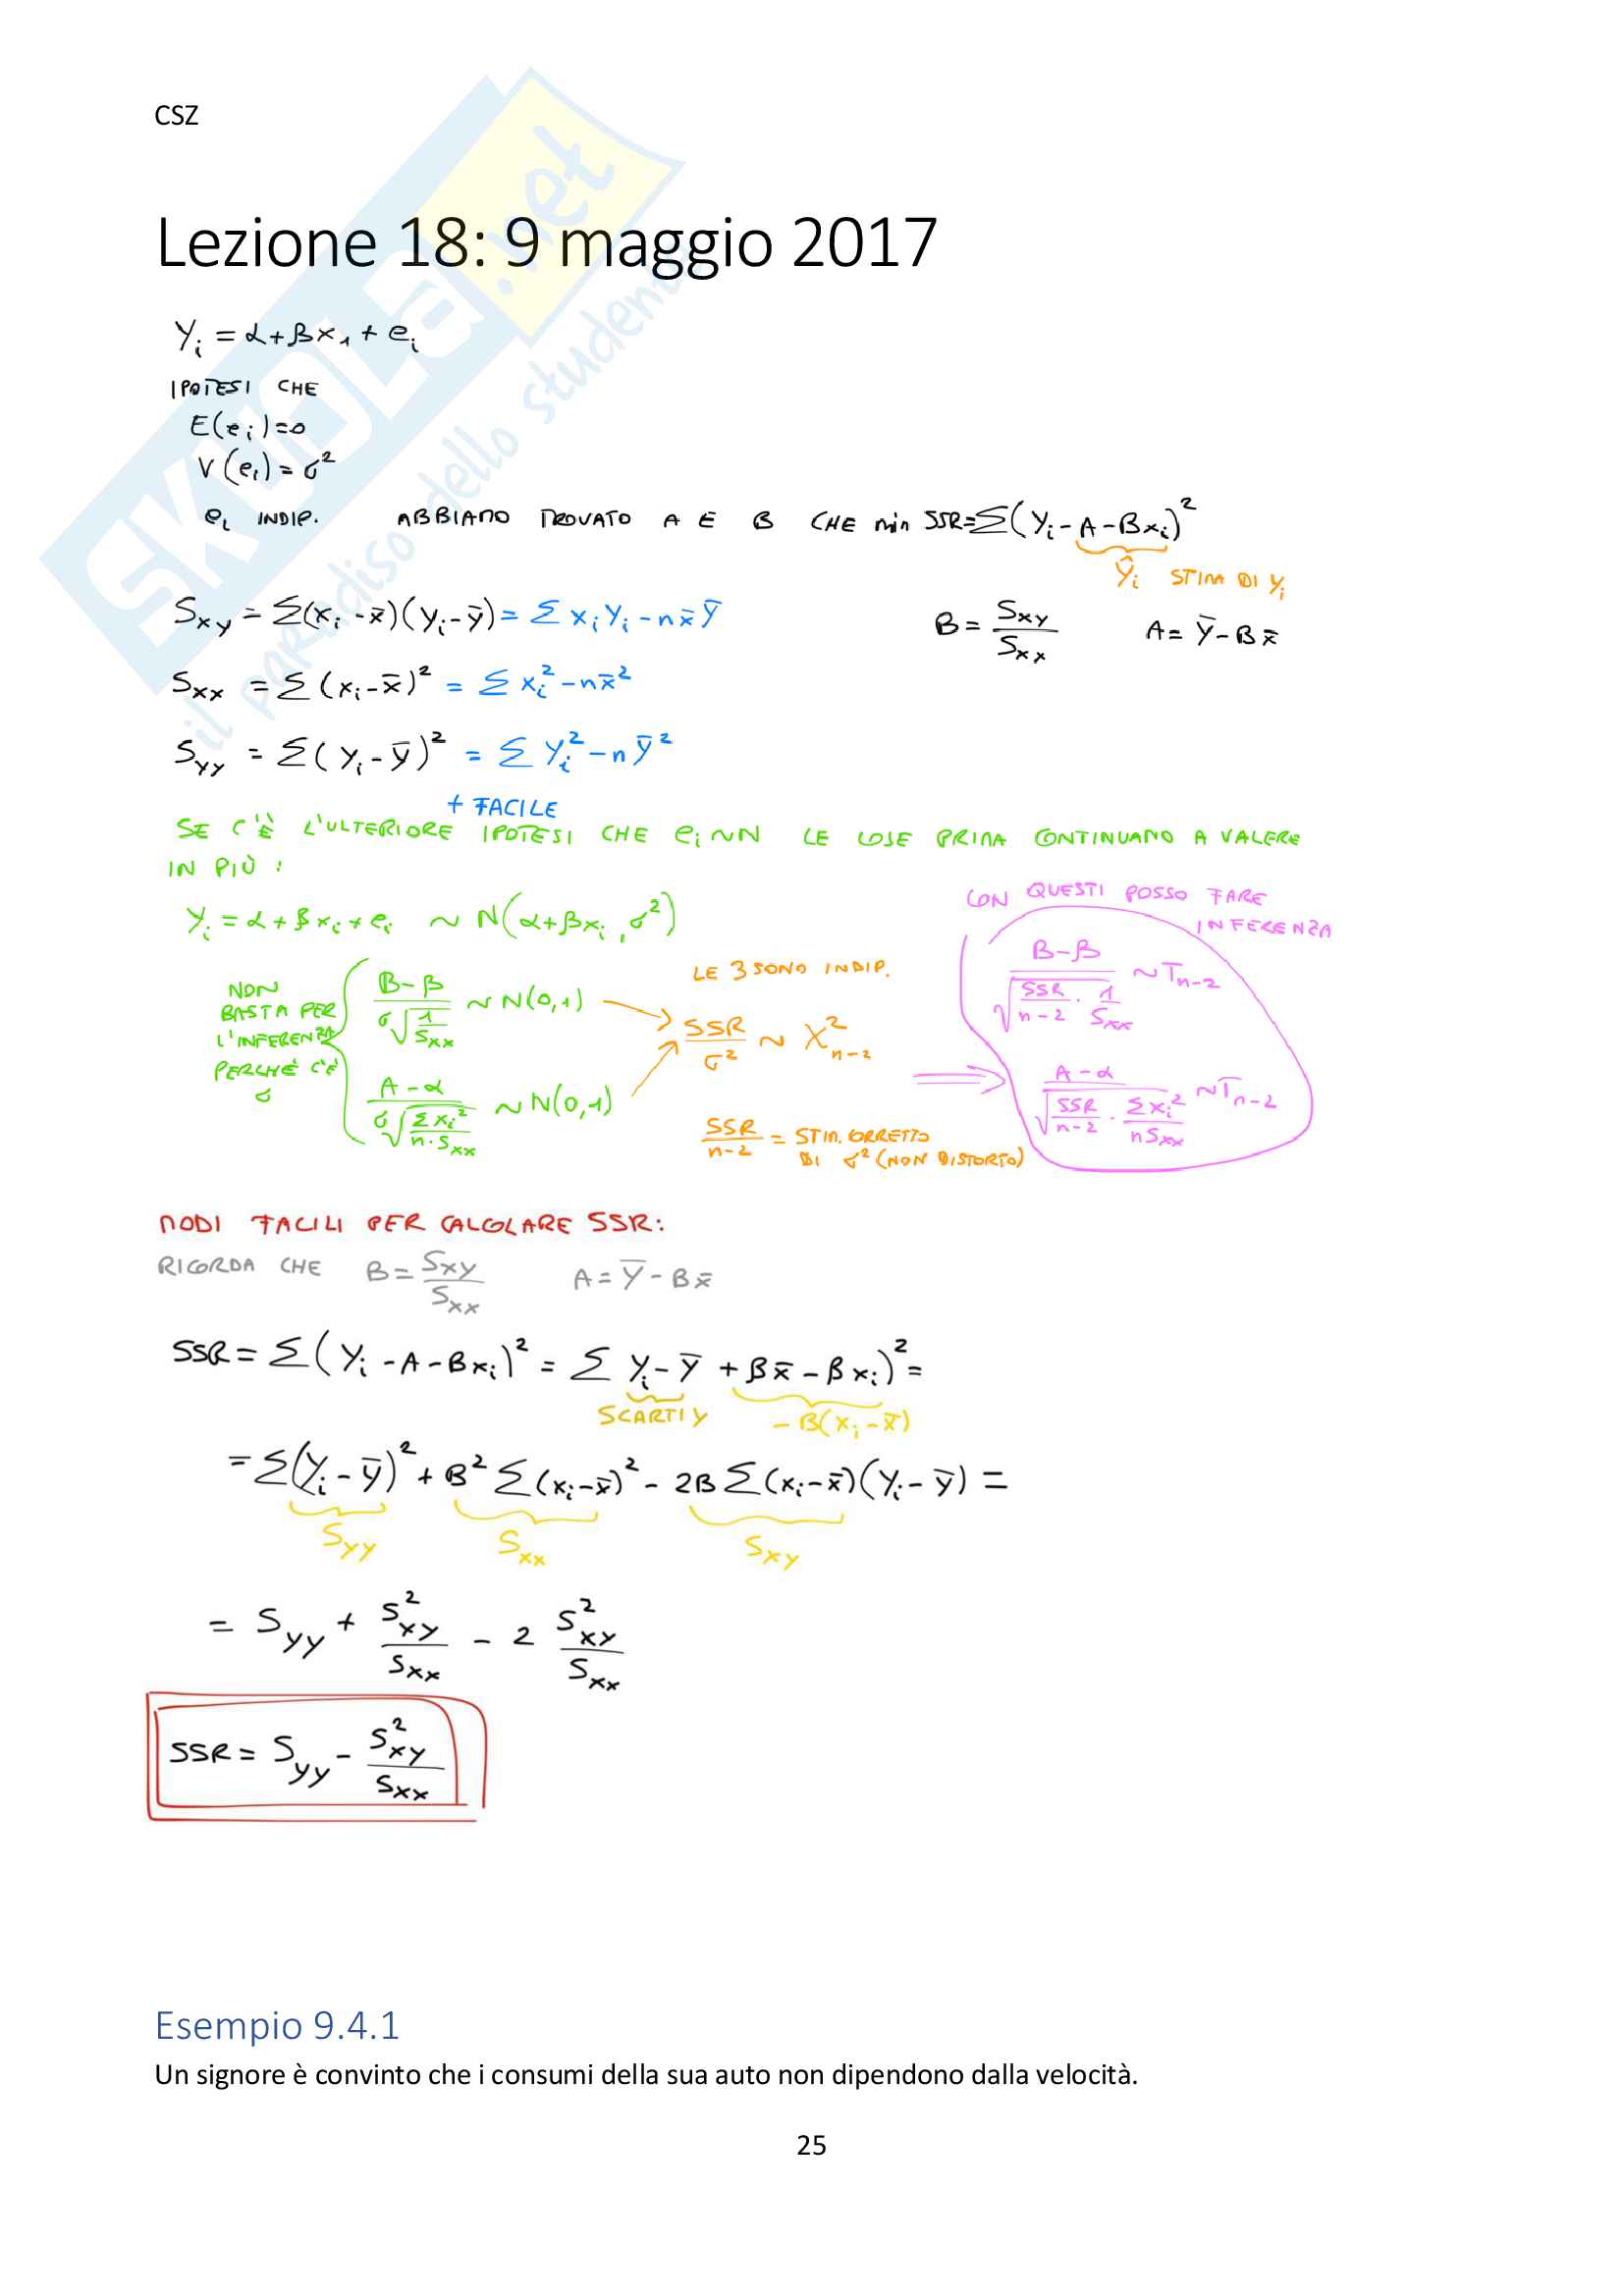 CSZ
SKUOLA.net
il paradiso dello studente
Lezione 18: 9 maggio 2017
Yᵢ = α+βx₁+eᵢ
IPOTESI CHE
E(eᵢ)=0
V(eᵢ)=σ²
eᵢ INDIP. ABBIAMO TROVATO A E B CHE min SSR=Σ(Yᵢ-A-Bxᵢ)²
Ŷᵢ STIMA DI Yᵢ
Sxy = Σ(xᵢ-x̄)(Yᵢ-Ȳ)= Σ xᵢYᵢ-nx̄Ȳ B= Sxy/Sxx A= Ȳ-Bx̄
Sxx = Σ(xᵢ-x̄)² = Σ xᵢ²-nx̄²
Syy = Σ(Yᵢ-Ȳ)² = Σ Yᵢ²-nȲ²
+ FACILE
SE C'È L'ULTERIORE IPOTESI CHE eᵢ∼N LE COSE PRIMA CONTINUANO A VALERE
IN PIÙ:
Yᵢ=α+βxᵢ+eᵢ ∼ N(α+βxᵢ, σ²)
CON QUESTI POSSO FARE
INFERENZA
NON
BASTA PER
L'INFERENZA
PERCHÉ C'È
σ
(B-β)/(σ√(1/Sxx)) ∼ N(0,1)
(A-α)/(σ√(Σxᵢ²/(n·Sxx))) ∼ N(0,1)
LE 3 SONO INDIP.
SSR/σ² ∼ X²n-2
SSR/(n-2) = STIM. CORRETTO
DI σ² (NON DISTORTO)
⟹
(B-β)/√(SSR/(n-2) · 1/Sxx) ∼Tn-2
(A-α)/√(SSR/(n-2) · Σxᵢ²/(nSxx)) ∼Tn-2
MODI FACILI PER CALCOLARE SSR:
RICORDA CHE B= Sxy/Sxx A=Ȳ-Bx̄
SSR= Σ(Yᵢ-A-Bxᵢ)² = Σ Yᵢ-Ȳ +Bx̄-Bxᵢ)²=
SCARTI Y -B(xᵢ-x̄)
=Σ(Yᵢ-Ȳ)²+B²Σ(xᵢ-x̄)²-2BΣ(xᵢ-x̄)(Yᵢ-Ȳ)=
Syy Sxx Sxy
= Syy + S²xy/Sxx - 2 S²xy/Sxx
SSR= Syy - S²xy/Sxx
Esempio 9.4.1
Un signore è convinto che i consumi della sua auto non dipendono dalla velocità.
25